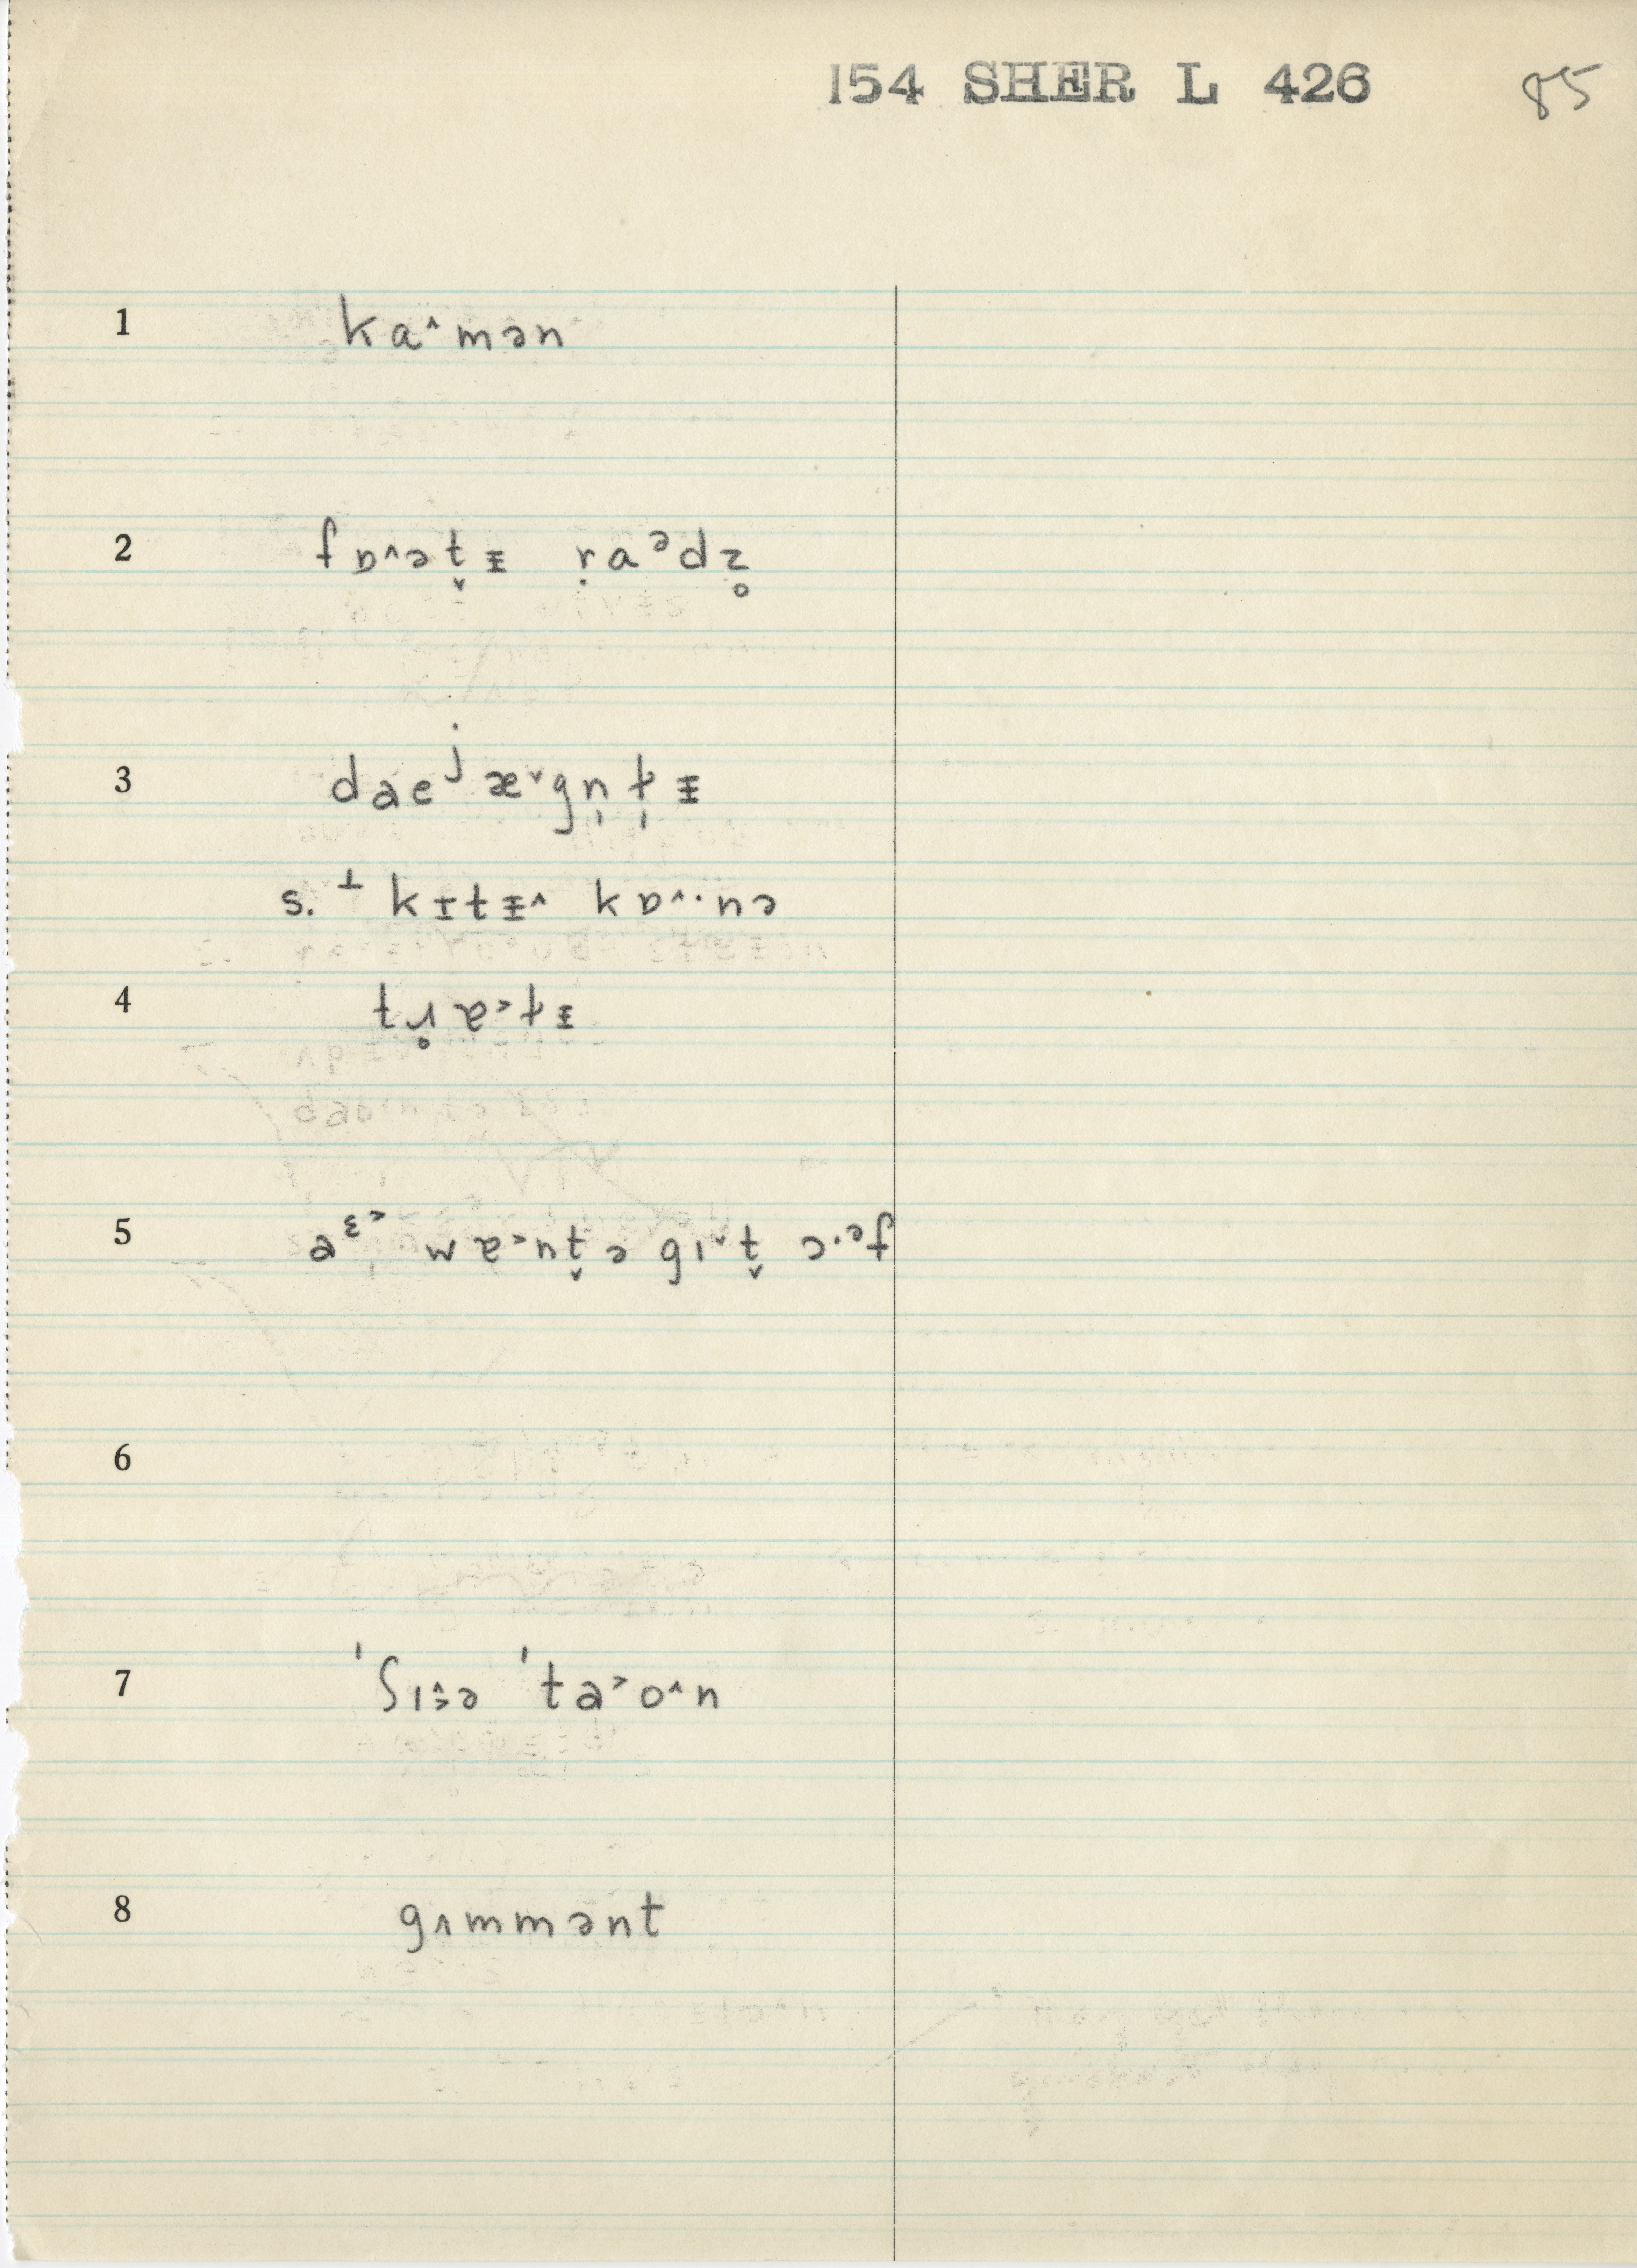 154 SHER L 426 85
1 ka˄mən
2 fɒ˄ət̬ᵻ ṛaᵊdz̥
3 daeʲæ˅gn̩t̩ᵻ
s. ⊥ kɪtᵻ˄ kɒ˄·nə
4 tɹ̥ɐ˂tᵻ
5 ɐᶟ˂ wɐ˂nt̬ə gɪ˅t̬ ɔ·ᵊf
6
7 ˈʃi˄·ə ˈta˃o˄n
8 gʌmmənt